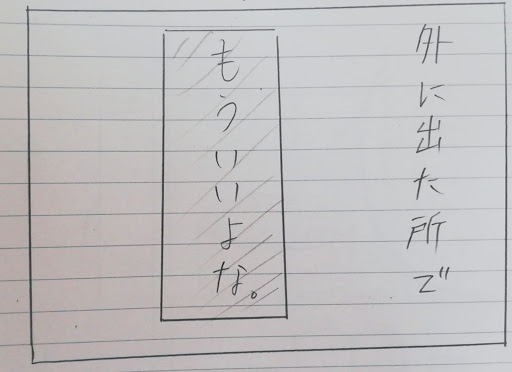 外に出た所で
もういいよな。